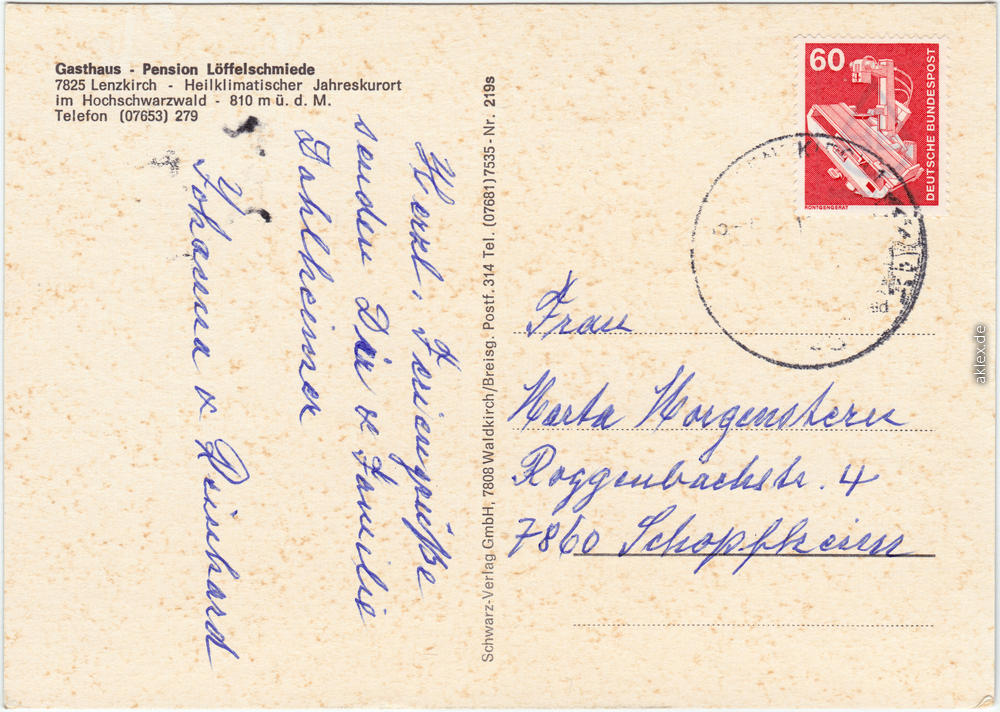 Gasthaus - Pension Löffelschmiede
7825 Lenzkirch - Heilklimatischer Jahreskurort
im Hochschwarzwald - 810 m ü. d. M.
Telefon (07653) 279
Herzl. Feriengrüße
senden Dir & Familie
Dahlheimer
Johanna & Reinhard
Schwarz-Verlag GmbH, 7808 Waldkirch/Breisg. Postf. 314 Tel. (07681) 7535 - Nr. 219s
60
DEUTSCHE BUNDESPOST
RÖNTGENGERÄT
Frau
Marta Morgenstern
Roggenbachstr. 4
7860 Schopfheim
aklex.de